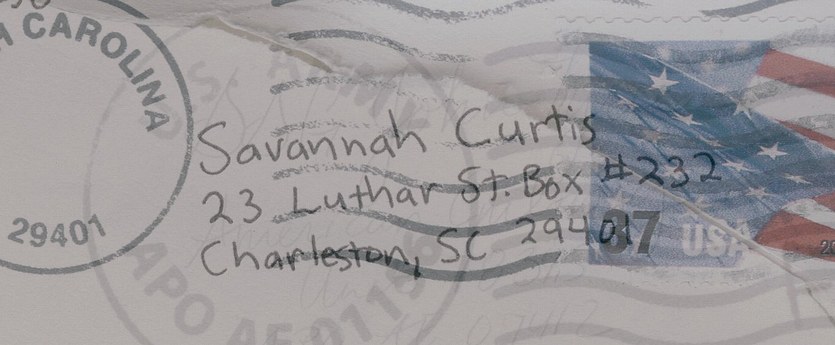 A CAROLINA
29401
U.S. ARMY
APO AE 01156
Savannah Curtis
23 Luthar St. Box #232
Charleston, SC 29401
37 USA